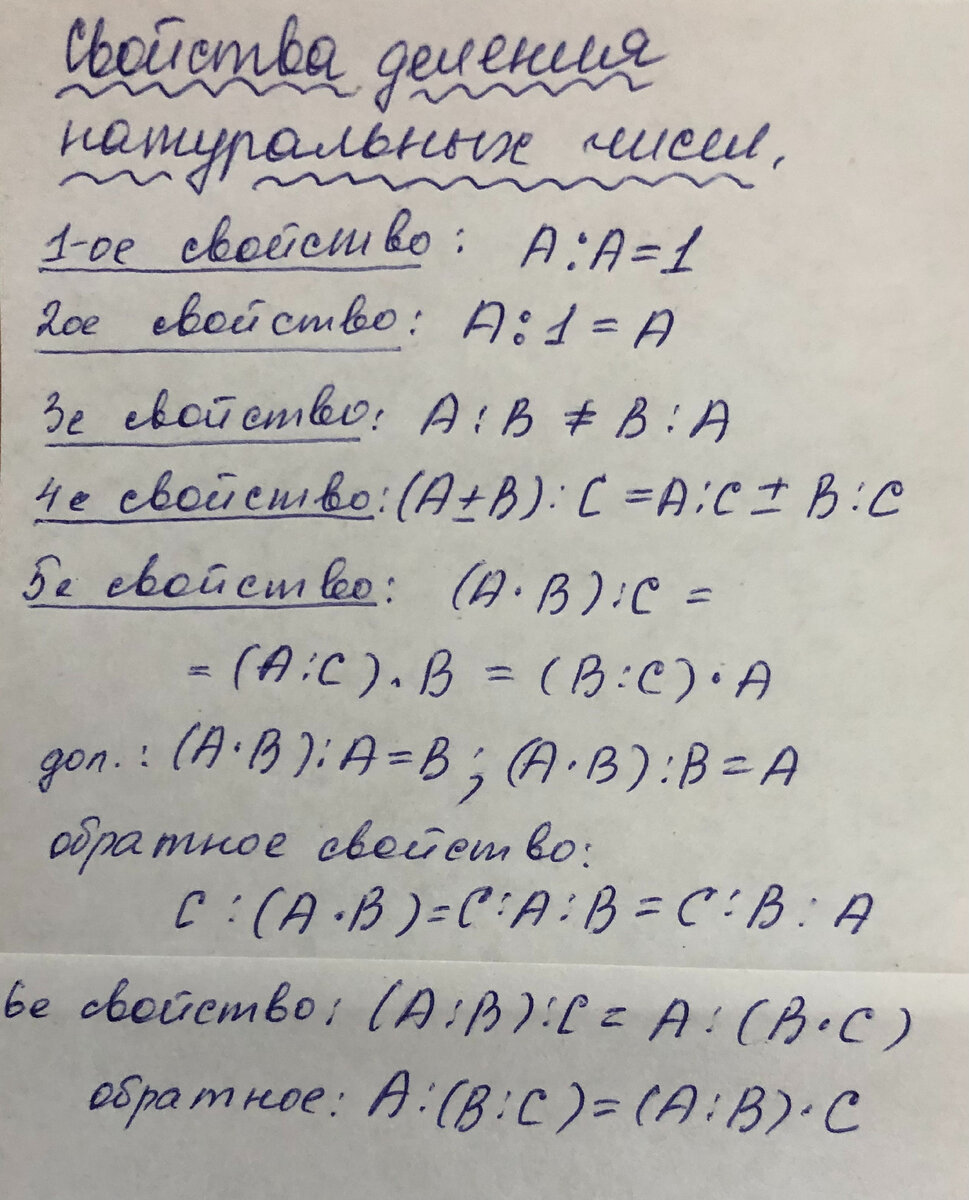 Свойства деления
натуральных чисел.
1-ое свойство: A:A=1
2ое свойство: A:1=A
3е свойство: A:B ≠ B:A
4е свойство: (A±B):C=A:C±B:C
5е свойство: (A·B):C =
= (A:C)·B = (B:C)·A
доп.: (A·B):A=B; (A·B):B=A
обратное свойство:
C:(A·B)=C:A:B=C:B:A
6е свойство: (A:B):C= A:(B·C)
обратное: A:(B:C)=(A:B)·C